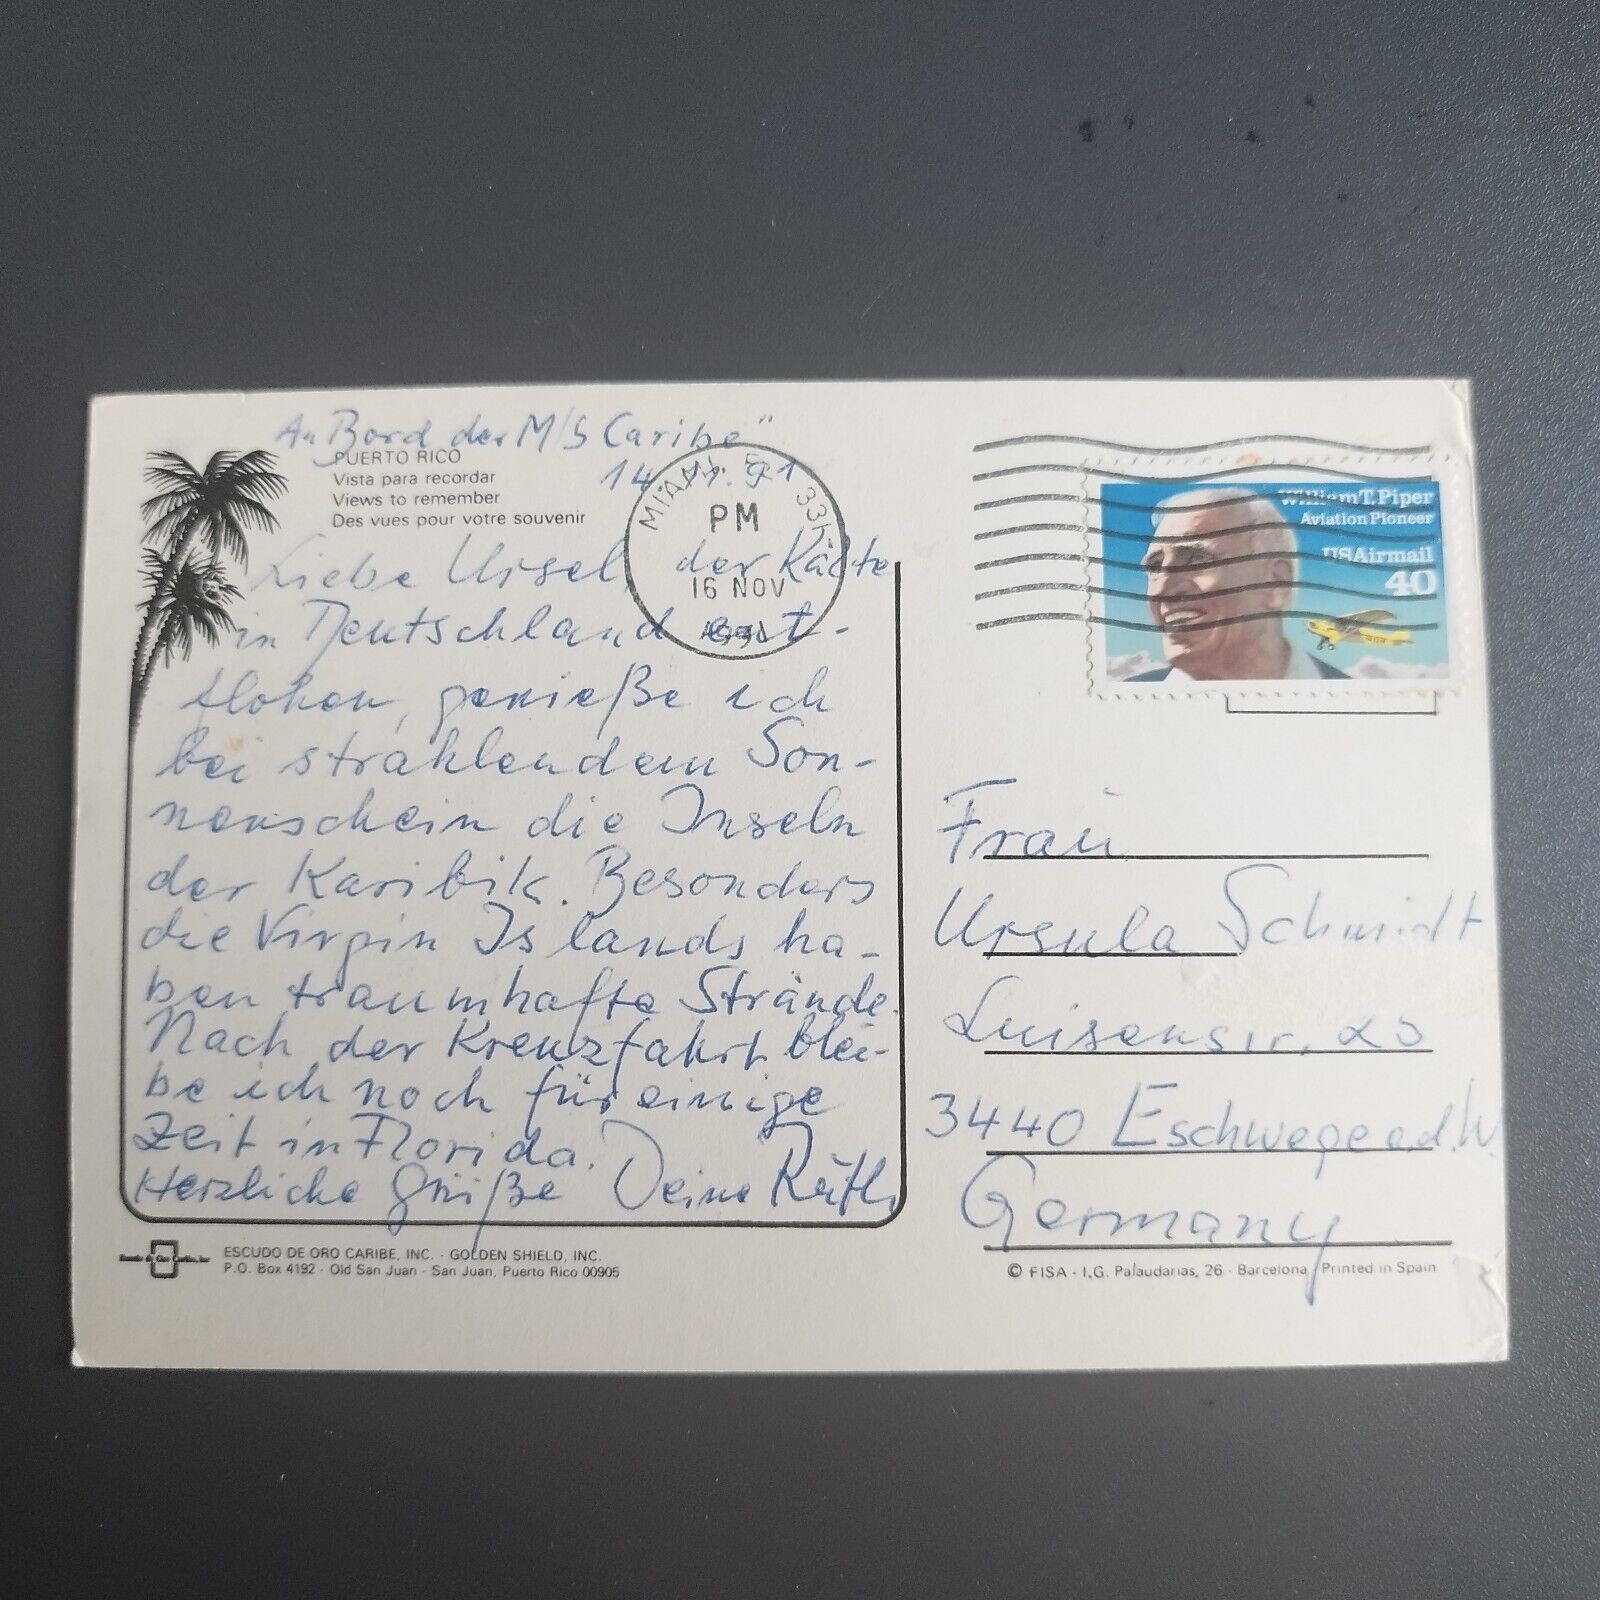 An Bord der M/S Caribe"
14.11.91
PUERTO RICO
Vista para recordar
Views to remember
Des vues pour votre souvenir
Liebe Ursel, der Kälte
in Deutschland ent-
flohen, genieße ich
bei strahlendem Son-
nenschein die Inseln
der Karibik. Besonders
die Virgin Islands ha-
ben traumhafte Strände.
Nach der Kreuzfahrt blei-
be ich noch für einige
Zeit in Florida.
Herzliche Grüße Deine Käthe
ESCUDO DE ORO CARIBE, INC. - GOLDEN SHIELD, INC.
P.O. Box 4192 - Old San Juan - San Juan, Puerto Rico 00905
MIAMI FL 331
PM
16 NOV
1991
William T. Piper
Aviation Pioneer
USAirmail
40
Frau
Ursula Schmidt
Luisenstr. 23
3440 Eschwege a.d.W.
Germany
© FISA - I.G. Palaudarias, 26 - Barcelona Printed in Spain